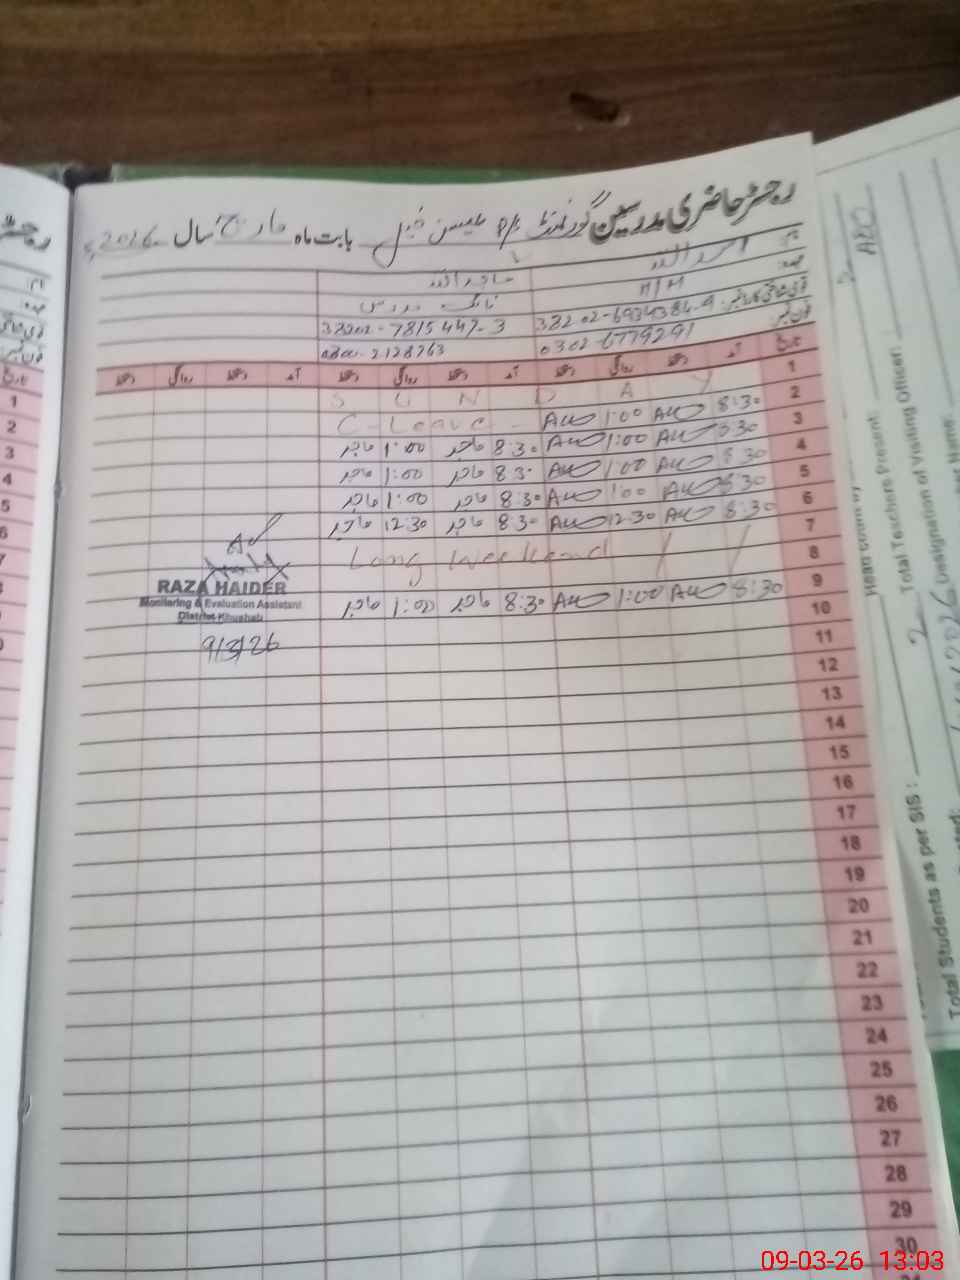 رجسٹر حاضری مدرسین گورنمنٹ P/S بابت ماہ مارچ سال 2026ء
نام:
اسد اللہ
ساجد اللہ
عہدہ:
H/M
نائب مدرس
قومی شناختی کارڈ نمبر: 38202-6934384-9 38202-7815447-3
فون نمبر: 0302-6779291 0300-2128763
تاریخ آمد دستخط روانگی دستخط آمد دستخط روانگی دستخط آمد دستخط روانگی دستخط
1 S U N D A Y
2 8:30 1:00 C-Leave
3 8:30 1:00 8:30 ماجد 1:00 ماجد
4 8:30 1:00 8:30 ماجد 1:00 ماجد
5 8:30 1:00 8:30 ماجد 1:00 ماجد
6 8:30 12:30 8:30 ماجد 12:30 ماجد
7 Long Weekend
8
9 8:30 1:00 8:30 ماجد 1:00 ماجد
10
11
12
13
14
15
16
17
18
19
20
21
22
23
24
25
26
27
28
29
30
RAZA HAIDER
Monitoring & Evaluation Assistant
District Khushab
9/3/26
رجسٹر
نام:
عہدہ:
قومی شناختی
فون نمبر:
تاریخ
1
2
3
4
5
6
7
8
9
2
AEO
Total Teachers Present:
2
Designation of Visiting Officer:
Total Students as per SIS:
09-03-26 13:03